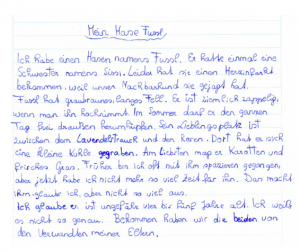 Mein Hase Fussl
Ich habe einen Hasen namens Fussl. Er hatte einmal eine
Schwester namens Sissi. Leider hat sie einen Herzinfarkt
bekommen, weil unser Nachbarhund sie gejagt hat.
Fussl hat graubraunes, langes Fell. Er ist ziemlich zappelig,
wenn man ihn hochnimmt. Im Sommer darf er den ganzen
Tag frei draußen herumhüpfen. Sein Lieblingsplatz ist
zwischen dem Lavendelstrauch und den Rosen. Dort hat er sich
eine kleine Kuhle gegraben. Am liebsten mag er Karotten und
frisches Gras. Früher bin ich oft mit ihm spazieren gegangen,
aber jetzt habe ich nicht mehr so viel Zeit für ihn. Das macht
ihm, glaube ich, aber nicht so viel aus.
Ich glaube er ist ungefähr vier bis fünf Jahre alt. Ich weiß
es nicht so genau. Bekommen haben wir die beiden von
den Verwandten meiner Eltern.